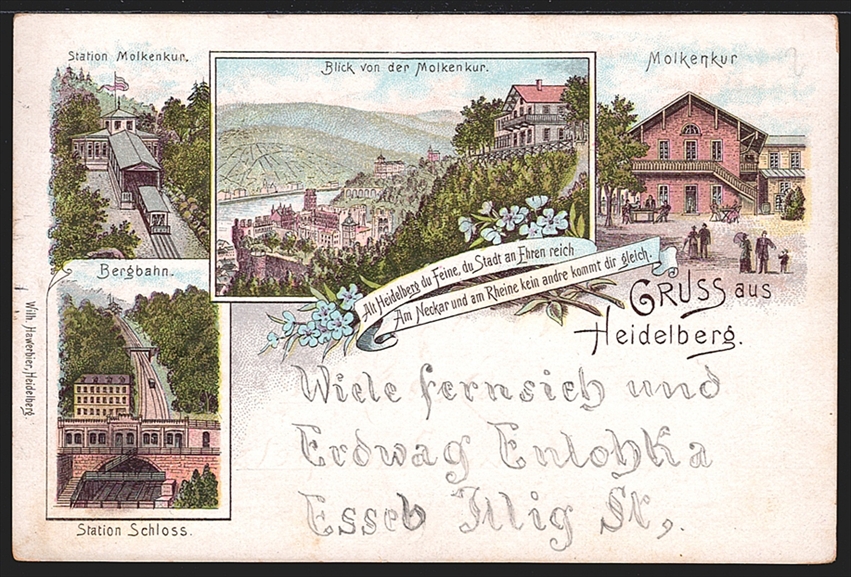 Station Molkenkur.
Blick von der Molkenkur.
Molkenkur
Bergbahn.
Alt Heidelberg du Feine, du Stadt an Ehren reich
Am Neckar und am Rheine kein andre kommt dir gleich.
GRUSS aus
Heidelberg.
Wilh. Hawerbier, Heidelberg.
Station Schloss.
Wiele fernsich und
Erdwag Enlohka
Esseb Illig Sr,